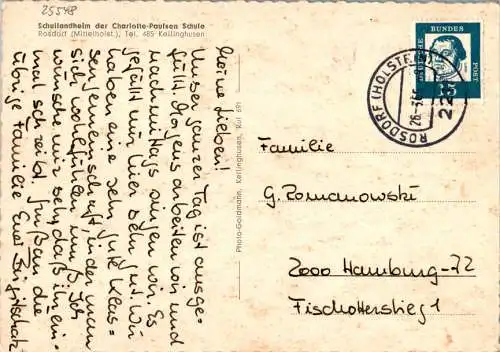 25548
Schullandheim der Charlotte-Paulsen Schule
Rosdorf (Mittelholst.), Tel. 485 Kellinghusen
Meine Lieben!
Unser ganzer Tag ist ausge-
füllt. Morgens arbeiten wir und
nachmittags singen wir. Es
gefällt mir hier sehr gut. Wir
haben eine sehr gute Klas-
sengemeinschaft in der man
sich wohlfühlen muß. Ich
wünsche mir sehr, daß ihr ein-
mal schreibt. Grüßan die
übrige Familie Eure
Photo-Goldmann, Kellinghusen, Ruf 691
DEUTSCHE BUNDESPOST
15
ROSDORF (HOLSTEIN)
Familie
G. Romanowski
2000 Hamburg-72
Fischottersteig 1